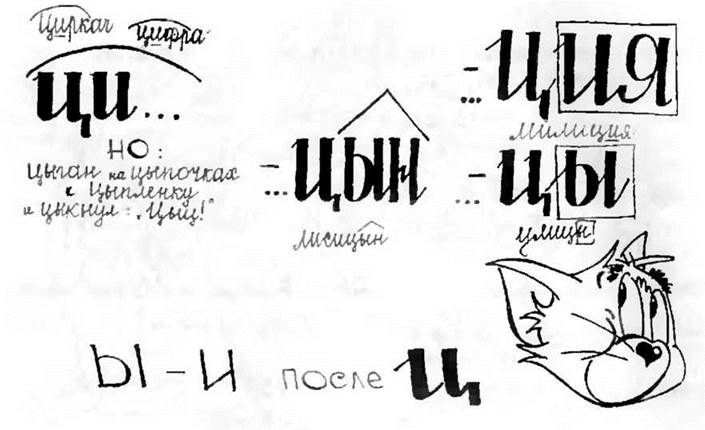 Циркач цифра
ци...
НО:
цыган на цыпочках
к цыпленку
и цыкнул: „Цыц!"
-...цын
лисицын
-...ция
милиция
-...цы
улицы
Ы - И после ц